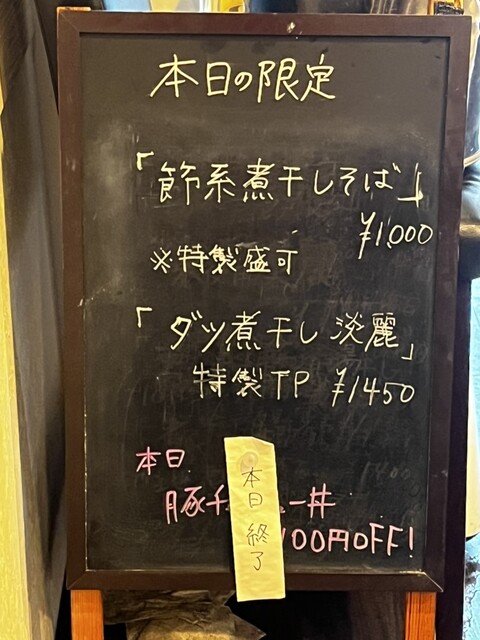 本日の限定
「節系煮干しそば」
¥1,000
※特製盛可
「ダツ煮干し淡麗」
特製TP ¥1450
本日
豚チ
ー丼
100円OFF!
本日終了